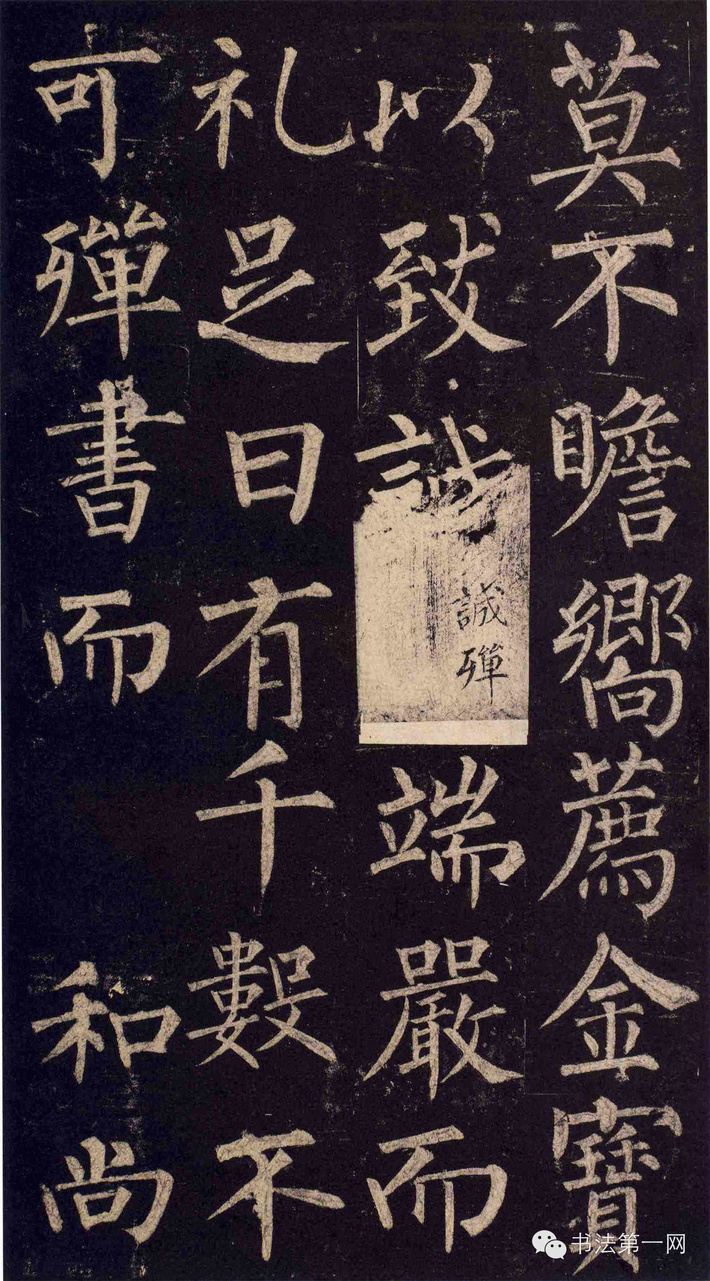 莫不瞻嚮薦金寶
以致誠端嚴而
誠殫
礼足日有千數不
可殫書而 和尚
书法第一网